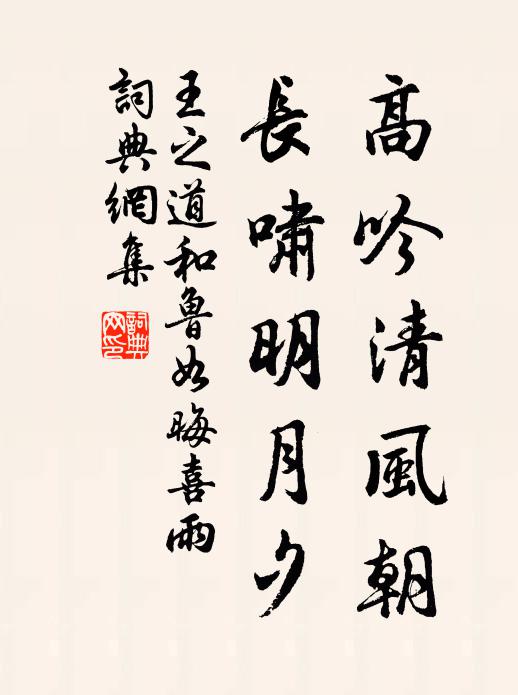 高吟清風朝
長嘯明月夕
王之道和魯如晦喜雨
詞典網集
詞典網印